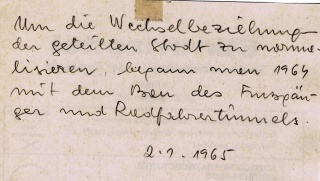 Um die Wechselbeziehung
der geteilten Stadt zu norma-
lisieren, begann men 1964
mit dem Bau des Fußgän-
ger und Radfahrertunnels.
2.1.1965